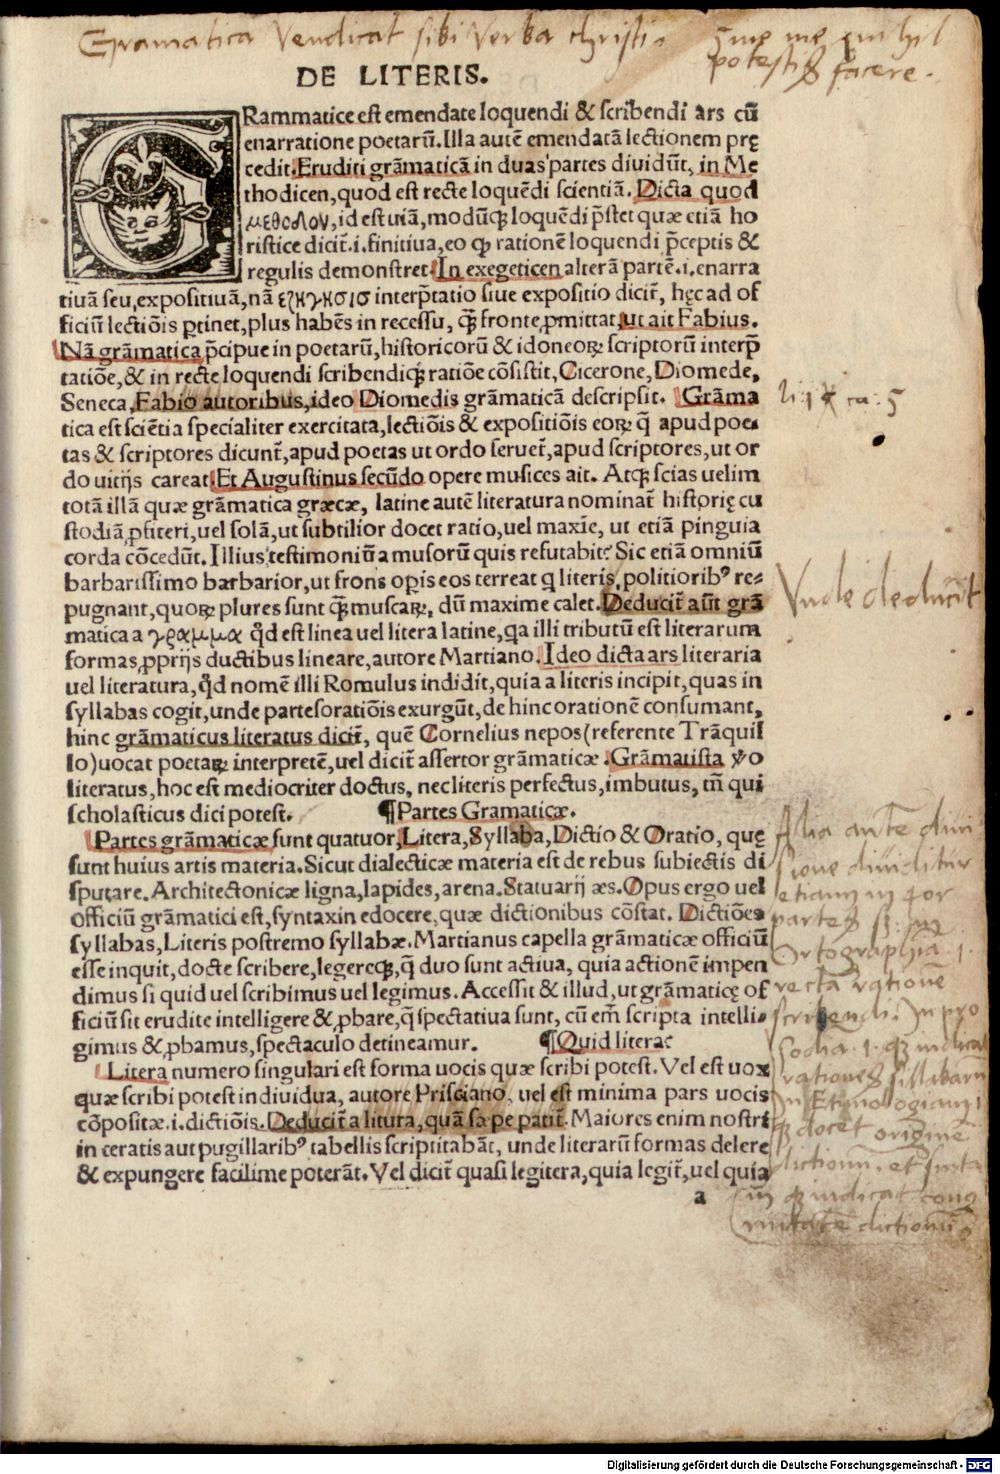 Gramatica Vendicat sibi Verba christi. Sine me nihil
potestis facere.
DE LITERIS.
GRammatice est emendate loquendi & scribendi ars cū
enarratione poetarū. Illa autē emendatā lectionem prę
cedit. Eruditi grāmaticā in duas partes diuidūt, in Me
thodicen, quod est recte loquēdi scientiā. Dicta quod
μεθοδον, id est uiā, modūqꝫ loquēdi p̄stet quæ etiā ho
ristice dicit̄.i. finitiua, eo ꝙ rationē loquendi p̄ceptis &
regulis demonstret. In exegeticen alterā partē.i. enarra
tiuā seu, expositiuā, nā εξηγησισ interp̄tatio siue expositio dicit̄, hęc ad of
ficiū lectiōis ꝑtinet, plus habēs in recessu, q̄ꝫ fronte ꝓmittat, ut ait Fabius.
Nā grāmatica p̄cipue in poetarū, historicorū & idoneoꝝ scriptorū interp̄
tatiōe, & in recte loquendi scribendiqꝫ ratiōe cōsistit, Cicerone, Diomede,
Seneca, Fabio autoribus, ideo Diomedis grāmaticā descripsit. Grāma
tica est sciētia specialiter exercitata, lectiōis & expositiōis eoꝝ q̄ apud poe-
tas & scriptores dicunt̄, apud poetas ut ordo seruet̄, apud scriptores, ut or
do uitijs careat. Et Augustinus secūdo opere musices ait. Atqꝫ scias uelim
totā illā quæ grāmatica græcæ, latine autē literatura nominat̄ historię cu
stodiā ꝓfiteri, uel solā, ut subtilior docet ratio, uel maxīe, ut etiā pinguia
corda cōcedūt. Illius testimoniū a musorū quis refutabit? Sic etiā omniū
barbarissimo barbarior, ut frons oꝑis eos terreat q literis, politioribꝰ re-
pugnant, quoꝝ plures sunt q̄ꝫ muscaꝝ, dū maxime calet. Deducit̄ aūt grā
matica a γραμμα qd̄ est linea uel litera latine, qa illi tributū est literarum
formas, ꝓprijs ductibus lineare, autore Martiano. Ideo dicta ars literaria
uel literatura, qd̄ nomē illi Romulus indidit, quia a literis incipit, quas in
syllabas cogit, unde partes oratiōis exurgūt, de hinc orationē consumant,
hinc grāmaticus literatus dicit̄, quē Cornelius nepos (referente Trāquil
lo) uocat poetaꝝ interpretē, uel dicit̄ assertor grāmaticæ. Grāmatista ꝟo
literatus, hoc est mediocriter doctus, nec literis perfectus, imbutus, tn̄ qui
scholasticus dici potest. ¶Partes Gramaticæ.
Partes grāmaticæ sunt quatuor, Litera, Syllaba, Dictio & Oratio, quę
sunt huius artis materia. Sicut dialecticæ materia est de rebus subiectis di
sputare. Architectonicæ ligna, lapides, arena. Statuarij æs. Opus ergo uel
officiū grāmatici est, syntaxin edocere, quæ dictionibus cōstat. Dictiōes
syllabas, Literis postremo syllabæ. Martianus capella grāmaticæ officiū
esse inquit, docte scribere, legereqꝫ, q̄ duo sunt actiua, quia actionē impen
dimus si quid uel scribimus uel legimus. Accessit & illud, ut grāmaticę of
ficiū sit erudite intelligere & ꝓbare, q̄ spectatiua sunt, cū em̄ scripta intelli-
gimus & ꝓbamus, spectaculo detineamur. ¶Quid literae
Litera numero singulari est forma uocis quæ scribi potest. Vel est uox
quæ scribi potest indiuidua, autore Prisciano, uel est minima pars uocis
cōpositæ.i. dictiōis. Deducit̄ a litura, quā sæpe patit̄. Maiores enim nostri
in ceratis aut pugillaribꝰ tabellis scriptitabāt, unde literarū formas delere
& expungere facilime poterāt. Vel dicit̄ quasi legitera, quia legit̄, uel quia
a
li: 1 ca: 5
Vnde deducit
Alia autē diui
sione diuiditur
etiam in 4or
partes
Ortographia .i.
recta rationē
scribendi. In pro
sodia .i. q indicat
rationes sillabarū
In Etimologiam
q docet originē
dictionū. et sinta
q indicat cong
ruitatē dictionū
Digitalisierung gefördert durch die Deutsche Forschungsgemeinschaft - DFG